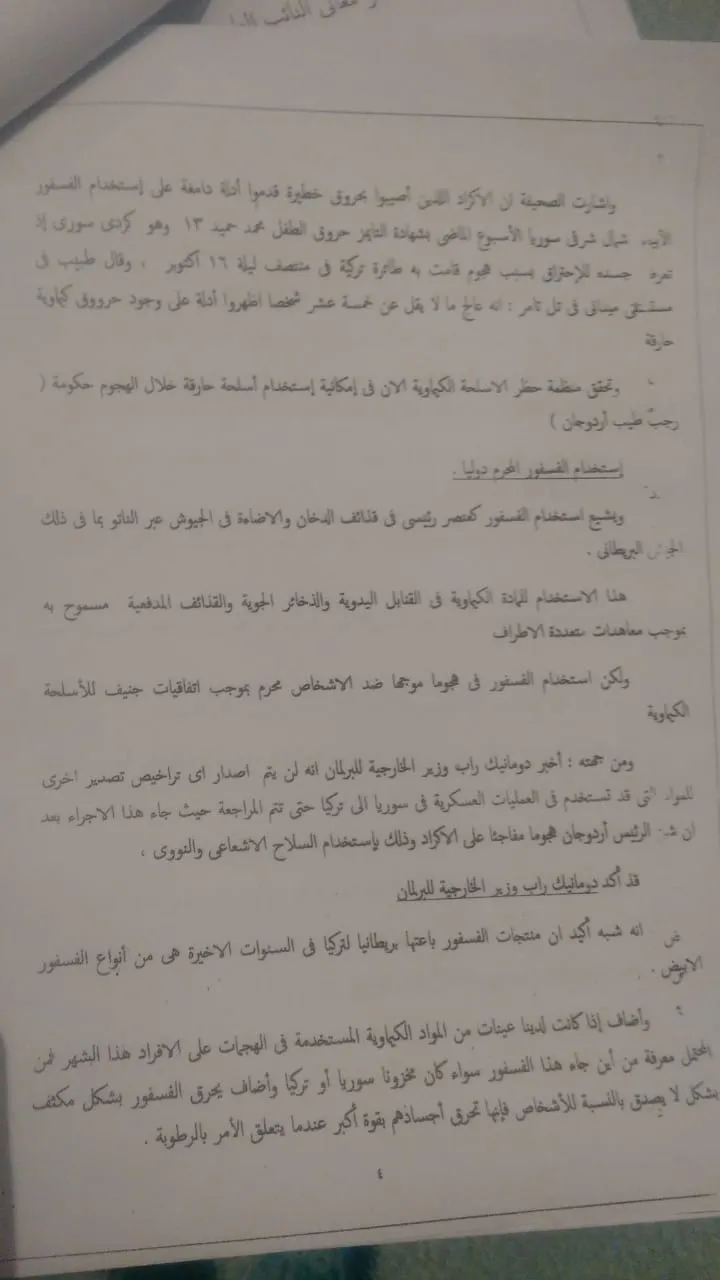 معالى النائب
٤
واشارت الصحيفة ان الاكراد اللذين أصيبوا بحروق خطيرة قدموا أدلة دامغة على إستخدام الفسفور
الأبيض شمال شرقى سوريا الأسبوع الماضى بشهادة التايمز حروق الطفل محمد حميد ١٣ وهو كردى سورى إذ
تعرض جسده للإحتراق بسبب هجوم قامت به طائرة تركية فى منتصف ليلة ١٦ أكتوبر ، وقال طبيب فى
مستشفى ميدانى فى تل تامر : انه عالج ما لا يقل عن خمسة عشر شخصا اظهروا أدلة على وجود حرووق كيماوية
حارقة
وتحقق منظمة حظر الاسلحة الكيماوية الان فى إمكانية إستخدام أسلحة حارقة خلال الهجوم حكومة (
رجب طيب أردوجان )
إستخدام الفسفور المحرم دوليا .
ويشيع استخدام الفسفور كعنصر رئيسى فى قذائف الدخان والاضاءة فى الجيوش عبر الناتو بما فى ذلك
الجيش البريطانى .
هذا الاستخدام للمادة الكيماوية فى القنابل اليدوية والذخائر الجوية والقذائف المدفعية مسموح به
بموجب معاهدات متعددة الاطراف
ولكن استخدام الفسفور فى هجوما موجها ضد الاشخاص محرم بموجب اتفاقيات جنيف للأسلحة
الكيماوية
ومن جهته : أخبر دومانيك راب وزير الخارجية للبرلمان انه لن يتم اصدار اى تراخيص تصدير اخرى
للمواد التى قد تستخدم فى العمليات العسكرية فى سوريا الى تركيا حتى تتم المراجعة حيث جاء هذا الاجراء بعد
ان شن الرئيس أردوجان هجوما مفاجئا على الاكراد وذلك بإستخدام السلاح الاشعاعى والنووى ،
قد أكد دومانيك راب وزير الخارجية للبرلمان
انه شبه أكيد ان منتجات الفسفور باعتها بريطانيا لتركيا فى السنوات الاخيرة هى من أنواع الفسفور
الابيض .
وأضاف إذا كانت لدينا عينات من المواد الكيماوية المستخدمة فى الهجمات على الافراد هذا الشهر فمن
المحتمل معرفة من أين جاء هذا الفسفور سواء كان مخزونا سوريا أو تركيا وأضاف يحرق الفسفور بشكل مكثف
بشكل لا يصدق بالنسبة للأشخاص فإنها تحرق أجساذهم بقوة أكبر عندما يتعلق الأمر بالرطوبة .
٤